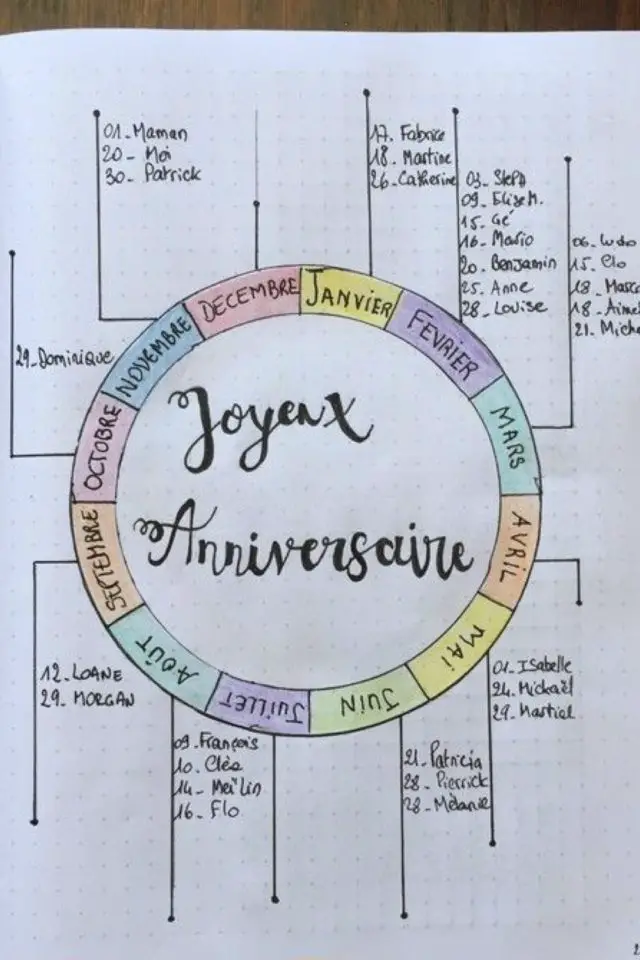 01_Maman
20_Moi
30_Patrick
17. Fabrice
18_Martine
26_Catherine
03_Steph
09_Elise M.
15_Gé
16_Mario
20_Benjamin
25_Anne
28_Louise
06_Ludo
15_Clo
18_Marc
18_Aimé
21_Miche
29_Dominique
DECEMBRE
JANVIER
FEVRIER
MARS
AVRIL
MAI
JUIN
JUILLET
AOÛT
SEPTEMBRE
OCTOBRE
NOVEMBRE
Joyeux
Anniversaire
12_LOANE
29_MORGAN
01_Isabelle
24_Mickaël
29_Martial
09_François
10_Cléa
14_Meï Lin
16_Flo
21_Patricia
28_Pierrick
28_Mélanie
2